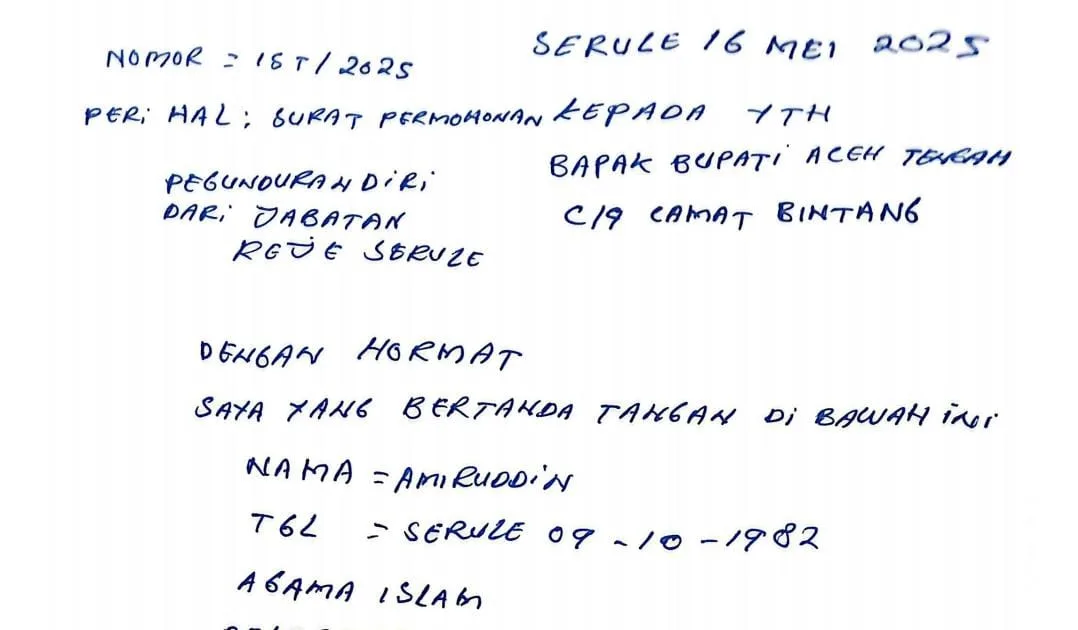 SERULE 16 MEI 2025
NOMOR = IST/2025
PERIHAL : SURAT PERMOHONAN
PEGUNDURAN DIRI
DARI JABATAN
REJE SERULE
KEPADA YTH
BAPAK BUPATI ACEH TENGAH
C/q CAMAT BINTANG
DENGAN HORMAT
SAYA YANG BERTANDA TANGAN DI BAWAH INI
NAMA = AMIRUDDIN
TGL = SERULE 09-10-1982
AGAMA ISLAM